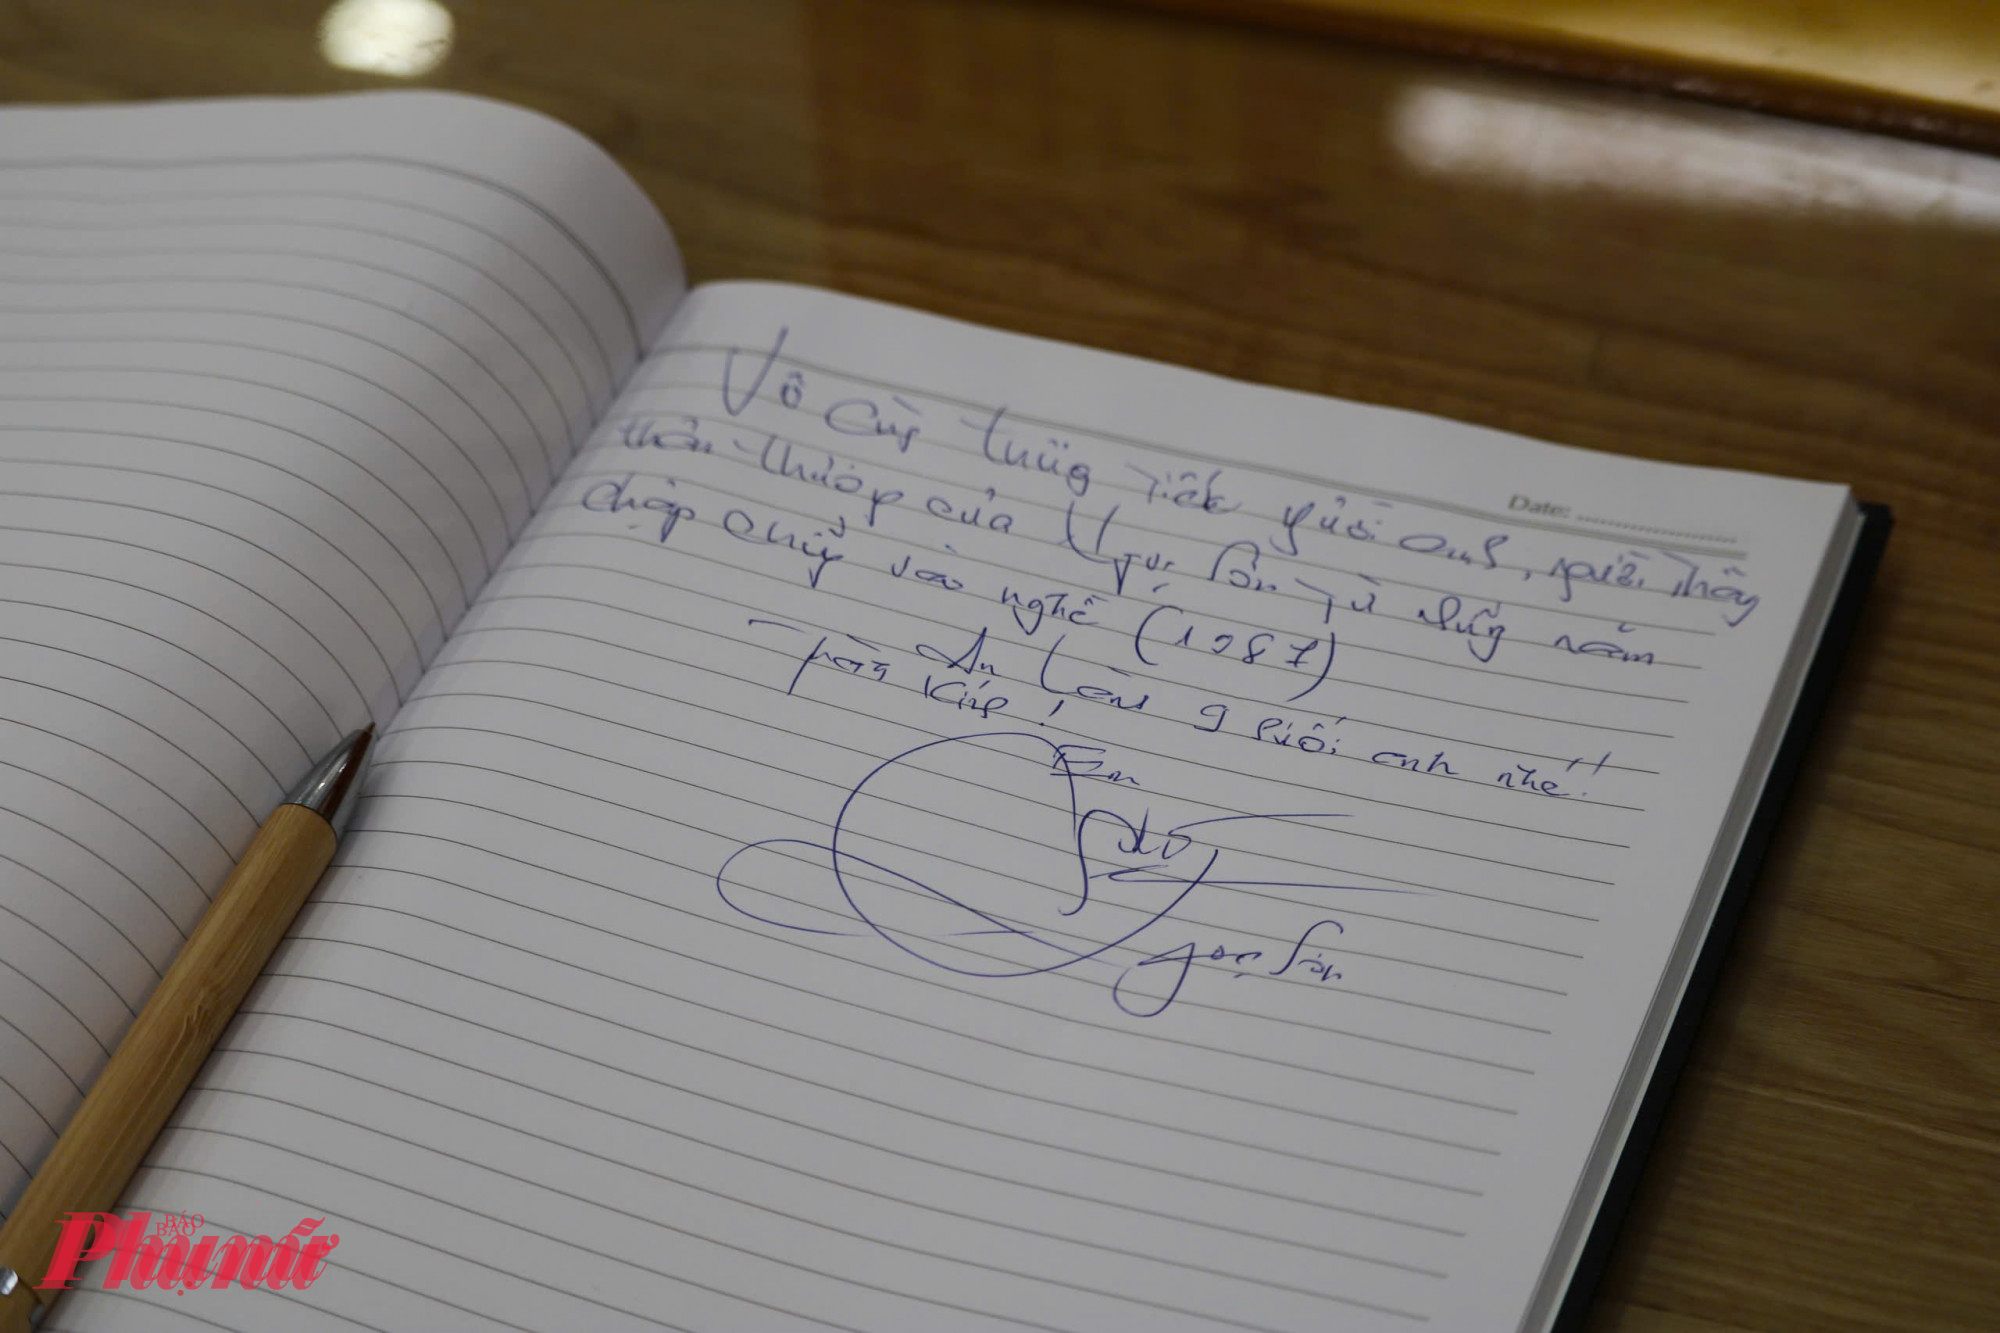 Vô cùng thương tiếc người anh, người Thầy
Date:
thân thương của Ngọc Sơn từ những năm
chập chững vào nghề (1987)
An lòng 9 suối anh nhé!!
Trân kính!
Em
Ngọc Sơn
BÁO
Phụ nữ